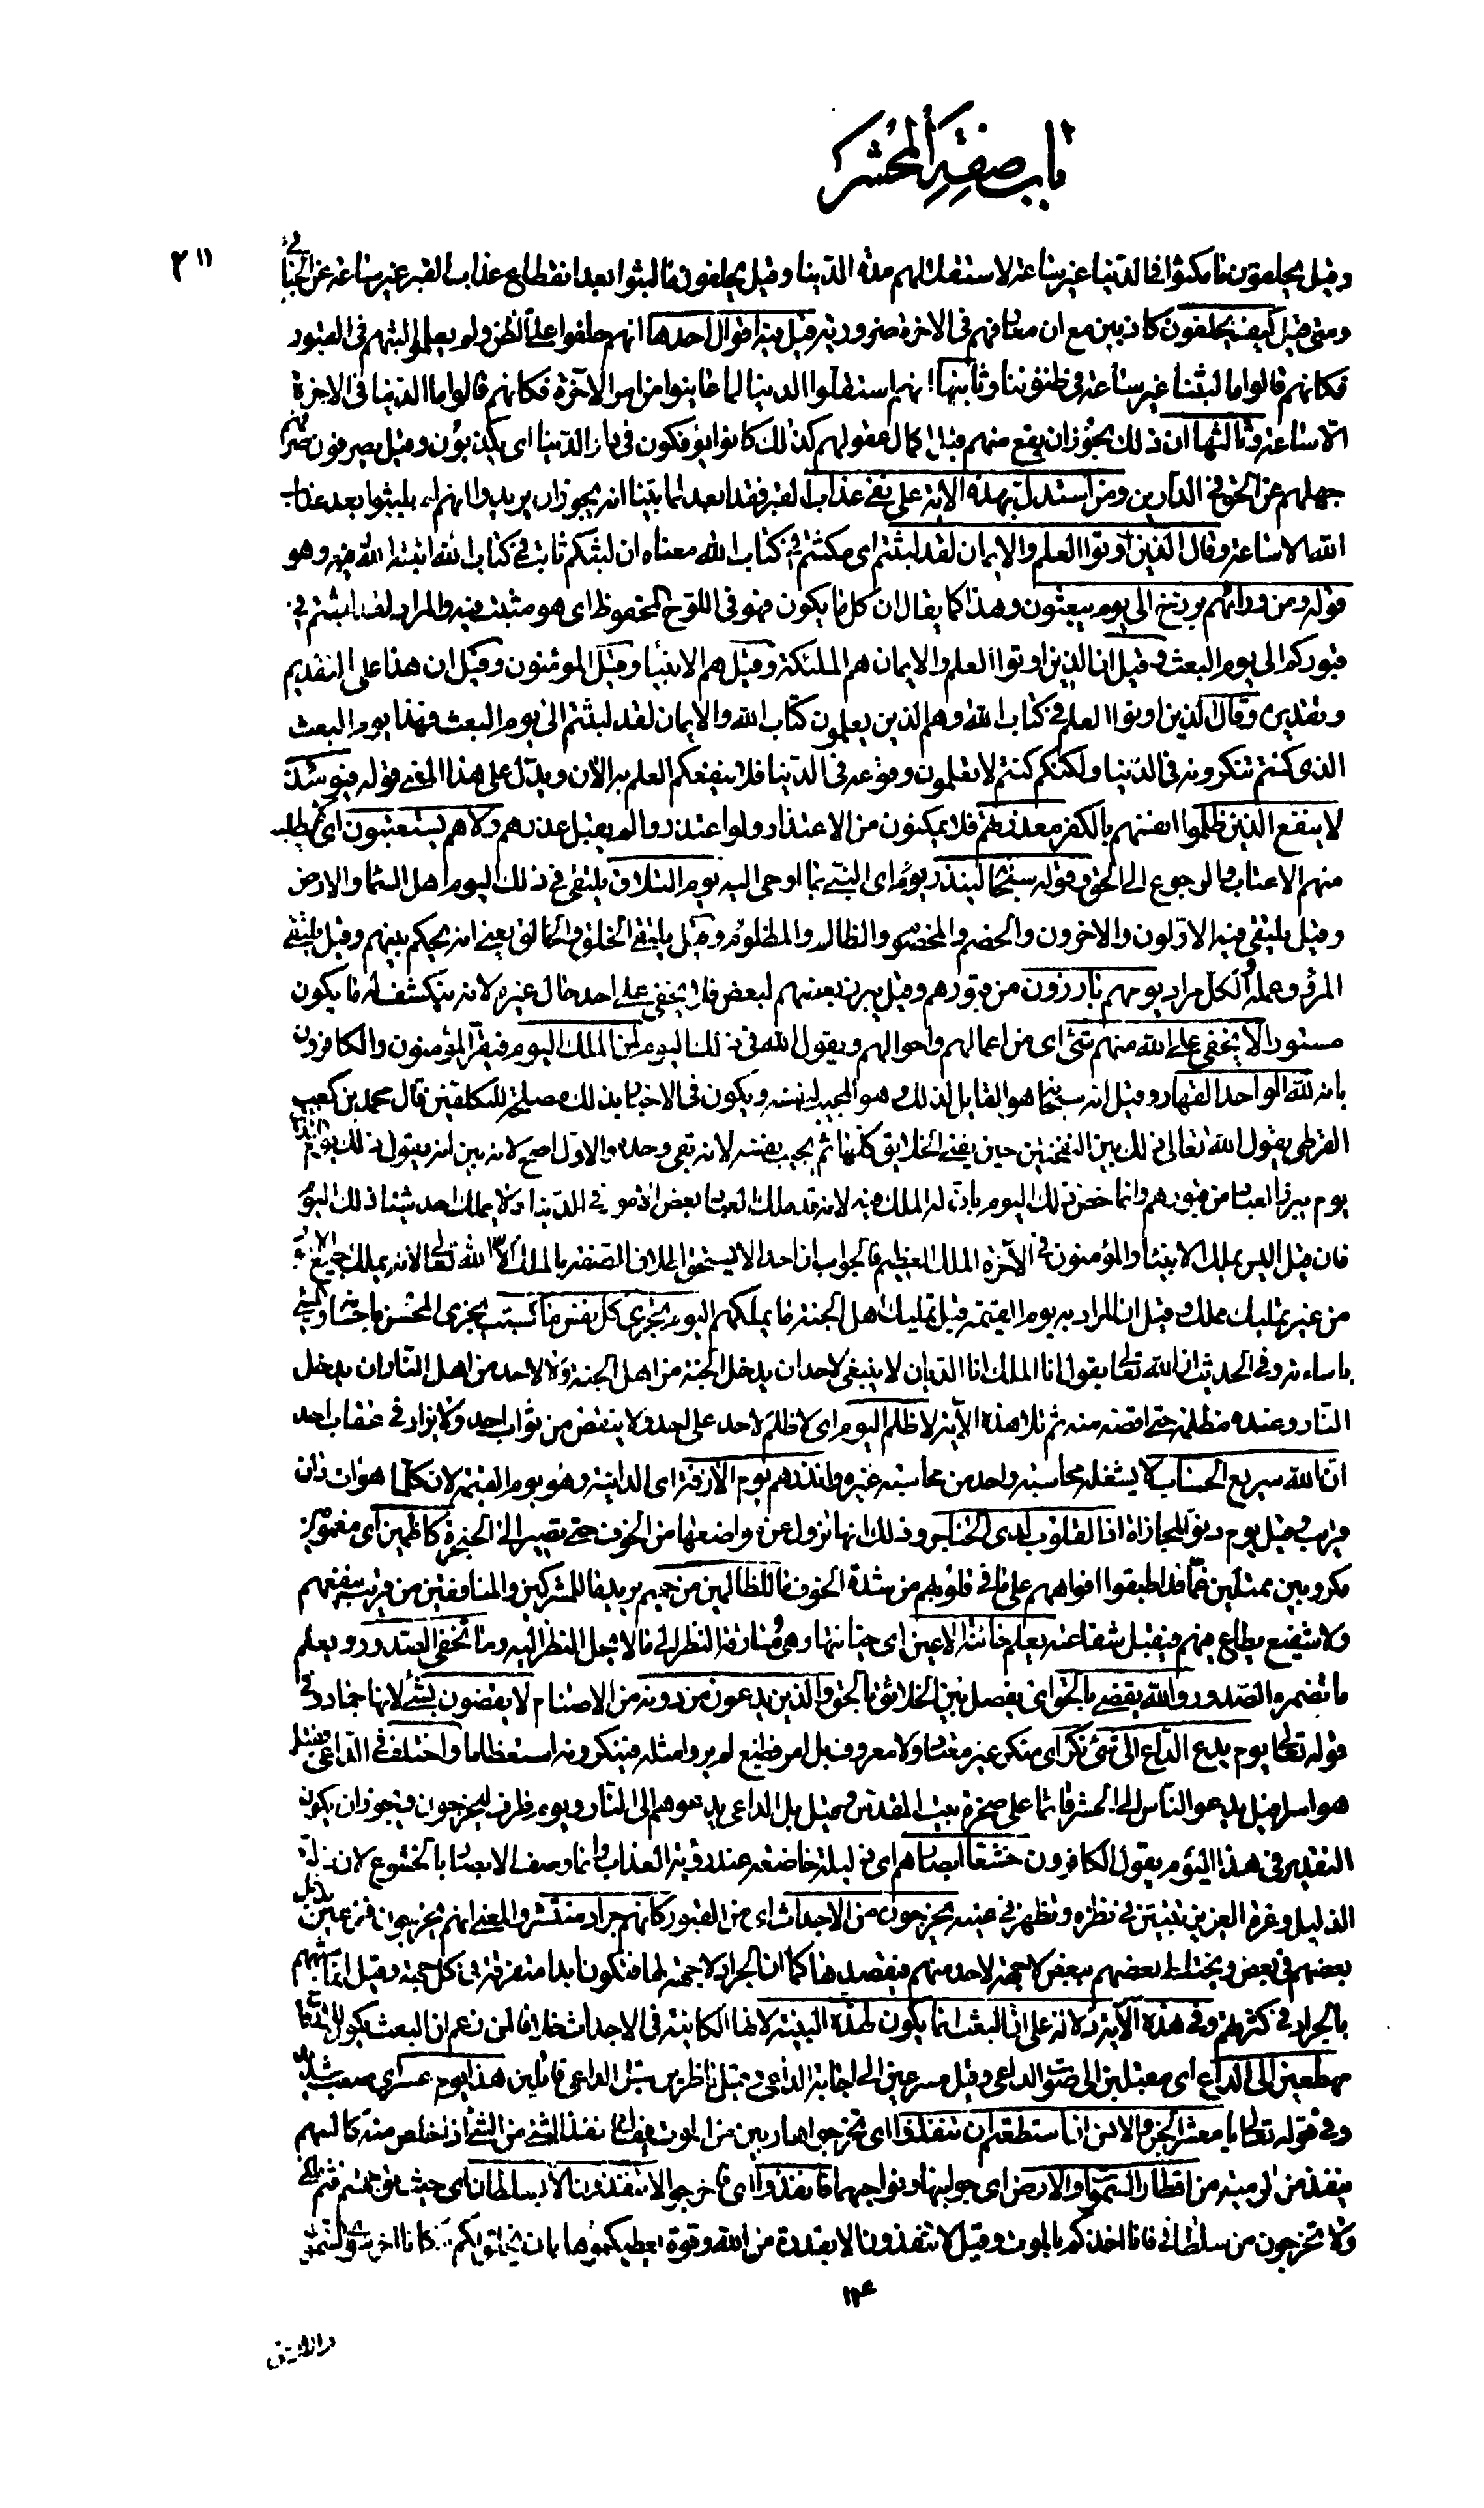 باب صفة المحشر
٢١١
وقيل يحلفون ما مكثوا في الدنيا غير ساعة لاستقلالهم مدة الدنيا وقيل يحلفون ما لبثوا بعد انقطاع عذاب القبر غير ساعة عن الجبائي
ومتى قيل كيف يحلفون كاذبين مع ان معارفهم في الاخرة ضرورية قيل فيه اقوال احدها انهم حلفوا على الظن ولم يعلموا لبثهم في القبور
فكانهم قالوا ما لبثنا غير ساعة في ظنوننا وثانيها انهم استقلوا الدنيا لما عاينوا من امر الآخرة فكانهم قالوا ما الدنيا في الاخرة
الا ساعة وثالثها ان ذلك يجوز ان يقع منهم قبل اكمال عقولهم كذلك كانوا يؤفكون في دار الدنيا اى يكذبون وقيل يصرفون صرفهم
جهلهم عن الحق في الدارين ومن استدل بهذه الاية على نفى عذاب القبر فقد ابعد لما بينا انه يجوز ان يريدوا انهم لم يلبثوا بعد عذاب
الله الا ساعة وقال الذين اوتوا العلم والايمان لقد لبثتم اى مكثتم في كتاب الله معناه ان لبثكم ثابت في كتاب الله اثبته الله فيه وهو
قوله ومن ورائهم برزخ الى يوم يبعثون وهذا كما يقال ان كل ما يكون فهو في اللوح المحفوظ اى هو مثبت فيه والمراد لقد لبثتم في
قبوركم الى يوم البعث وقيل ان الذين اوتوا العلم والايمان هم الملئكة وقيل هم الانبيا وقيل المومنون وقيل ان هذا على التقديم
وتقديره وقال الذين اوتوا العلم في كتاب الله وهم الذين يعلمون كتاب الله والايمان لقد لبثتم الى يوم البعث فهذا يوم البعث
الذى كنتم تنكرونه في الدنيا ولكنكم كنتم لا تعلمون وقوعه في الدنيا فلا ينفعكم العلم به الان ويدل على هذا المعنى قوله فيومئذ
لا ينفع الذين ظلموا انفسهم بالكفر معذرتهم فلا يمكنون من الاعتذار ولو اعتذروا لم يقبل عذرهم ولا هم يستعتبون اى لا يطلب
منهم الاعتاب والرجوع الى الحق وقوله سبحانه لينذر يوم اى النبى بما اوحى اليه يوم التلاق يلتقى في ذلك اليوم اهل السما والارض
وقيل يلتقى فيه الاولون والاخرون والخصم والمخصوم والظالم والمظلوم وقيل يلتقى الخلق والخالق يعنى انه يحكم بينهم وقيل يلتقى
المرؤ وعمله والكل مراد يوم هم بارزون من قبورهم وقيل يبرز بعضهم لبعض فلا يخفى على احد حال غيره لانه ينكشف له ما يكون
مستورا لا يخفى على الله منهم شئ اى من اعمالهم واحوالهم ويقول الله في ذلك اليوم لمن الملك اليوم فيقر المؤمنون والكافرون
بانه لله الواحد القهار وقيل انه سبحانه هو القايل لذلك وهو المجيب لنفسه ويكون في الاخبار بذلك مصلحة للمكلفين قال محمد بن كعب
القرظى يقول الله تعالى ذلك بين النفختين حين يفنى الخلايق كلها ثم يجيب نفسه لانه بقى وحده والاول اصح لانه بين انه يقول ذلك يوم التلاق
يوم يبرز العباد من قبورهم وانما خص ذلك اليوم بان له الملك فيه لانه قد ملك العباد بعض الامور في الدنيا ولا يملك احد شيئا ذلك اليوم
فان قيل اليس يملك الانبياء والمؤمنون في الآخرة الملك العظيم فالجواب ان احدا لا يستحق اطلاق الصفة بالملك الا الله تعالى لانه يملك جميع الامور
من غير تمليك مملك وقيل ان المراد به يوم القيمة قبل تمليك اهل الجنة ما يملكهم اليوم تجزى كل نفس ما كسبت يجزى المحسن باحسانه والمسئ
باساءته وفي الحديث ان الله تعالى يقول انا الملك انا الديان لا ينبغى لاحد ان يدخل الجنة من اهل الجنة ولا لاحد من اهل النار ان يدخل
النار وعنده مظلمة حتى اقصه منه ثم تلا هذه الآية لا ظلم اليوم اى لا ظلم لاحد على احد ولا ينقص من ثواب احد ولا يزاد في عقاب احد
ان الله سريع الحساب لا يشغله محاسبة واحد من محاسبة غيره وانذرهم يوم الازفة اى الدانية وهو يوم القيمة لان كل ما هو ات دان
قريب وقيل يوم دنو المجازاة اذ القلوب لدى الحناجر وذلك انها تزول عن مواضعها من الخوف حتى تصير الى الحنجرة كاظمين اى مغمومين
مكروبين ممتلئين غما قد اطبقوا افواههم على ما في قلوبهم من شدة الخوف ما للظالمين من حميم يريد ما للمشركين والمنافقين من قريب ينفعهم
ولا شفيع يطاع فيهم فيقبل شفاعته يعلم خائنة الاعين اى خيانتها وهى مسارقة النظر الى ما لا يحل النظر اليه وما تخفى الصدور ويعلم
ما تضمره الصدور والله يقضى بالحق اى يفصل بين الخلائق بالحق والذين يدعون من دونه من الاصنام لا يقضون بشئ لانها جماد وفي
قوله تعالى يوم يدع الداع الى شئ نكر اى منكر غير معتاد ولا معروف بل امر فظيع لم يروا مثله فينكرونه استعظاما واختلف في الداعى فقيل
هو اسرافيل يدعو الناس الى الحشر قائما على صخرة بيت المقدس وقيل بل الداعى يدعوهم الى النار ويوم ظرف ليخرجون ويجوز ان يكون
التقدير في هذا اليوم يقول الكافرون خشعا ابصارهم اى ذليلة خاضعة عند رؤية العذاب وانما وصف الابصار بالخشوع لان ذلة
الذليل وعزة العزيز تتبين في نظره وتظهر في عينه يخرجون من الاجداث اى من القبور كانهم جراد منتشر والمعنى انهم يخرجون فزعين يدخل
بعضهم في بعض ويختلط بعضهم ببعض لا جهة لاحد منهم فيقصدها كما ان الجراد لا جهة لها فتكون ابدا متفرقة في كل جهة وقيل انما شبههم
بالجراد في كثرتهم وفي هذه الآية دلالة على ان البعث انما يكون لهذه البنية لانها الكائنة في الاجداث خلافا لمن زعم ان البعث يكون للارواح
مهطعين الى الداع اى مقبلين الى صوت الداعى وقيل مسرعين الى اجابة الداعى وقيل ناظرين قبل الداعى قائلين هذا يوم عسر اى صعب شديد
وفي قوله تعالى يا معشر الجن والانس ان استطعتم ان تنفذوا اى تخرجوا هاربين من الموت يقال نفذ الشئ من الشئ اذا خلص منه كالسهم
ينفذ من الرمية من اقطار السموات والارض اى جوانبها ونواحيهما فانفذوا اى فاخرجوا لا تنفذون الا بسلطان اى حيث توجهتم فثم ملكى
ولا تخرجون من سلطانى فانا اخذكم بالموت وقيل لا تنفذون الا بقدرة من الله وقوة يعطيكموها بان يخلق لكم مكانا اخر سوى السموات